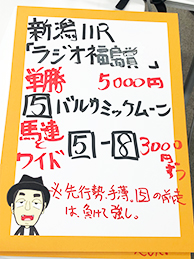 新潟11R
「ラジオ福島賞」
単勝 5000円
5 バルサミックムーン
馬連とワイド 5-8 3000円ずつ
※先行勢、手薄、5の前走
は、負けて強し。